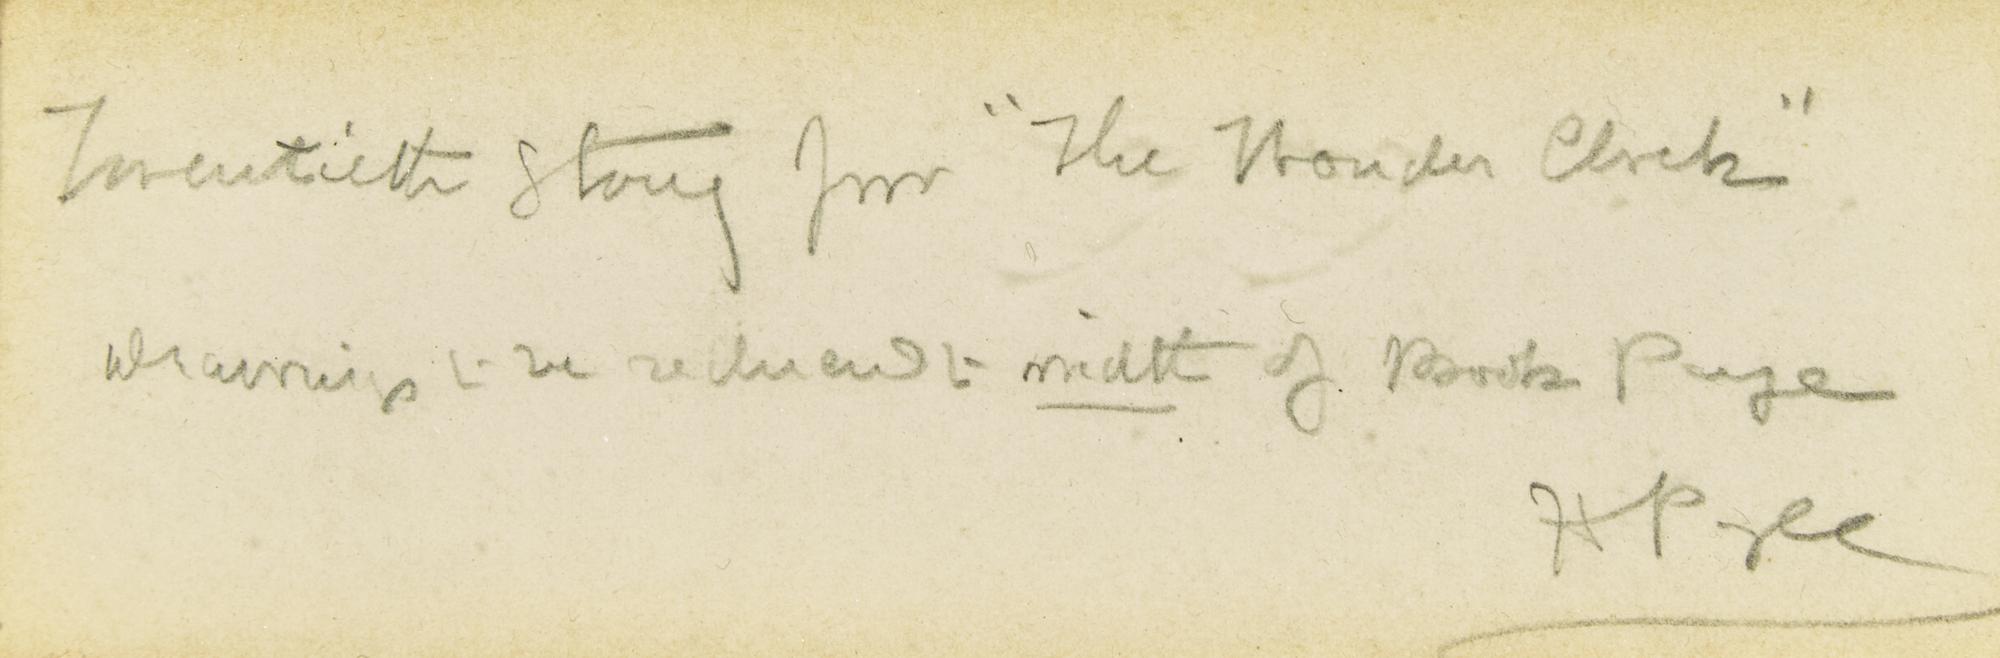 Twentieth Story for "The Wonder Clock"
Drawings to be reduced to width of Book Page
H Pyle